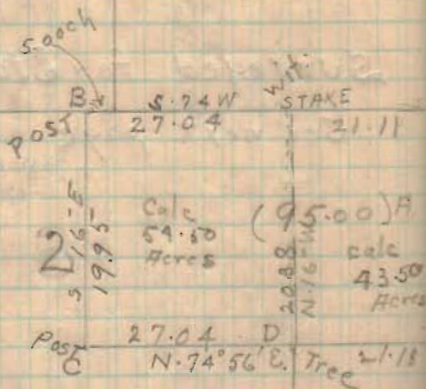 5.00ch
B S.74W Wit. STAKE
POST 27.04 21.11
2 S 16-E 19.95
Calc
54.50
Acres
(95.00)A
20.88 N-16-W
calc
43.50
Acres
Post 27.04 D
C N.74°56'E. Tree 21.18